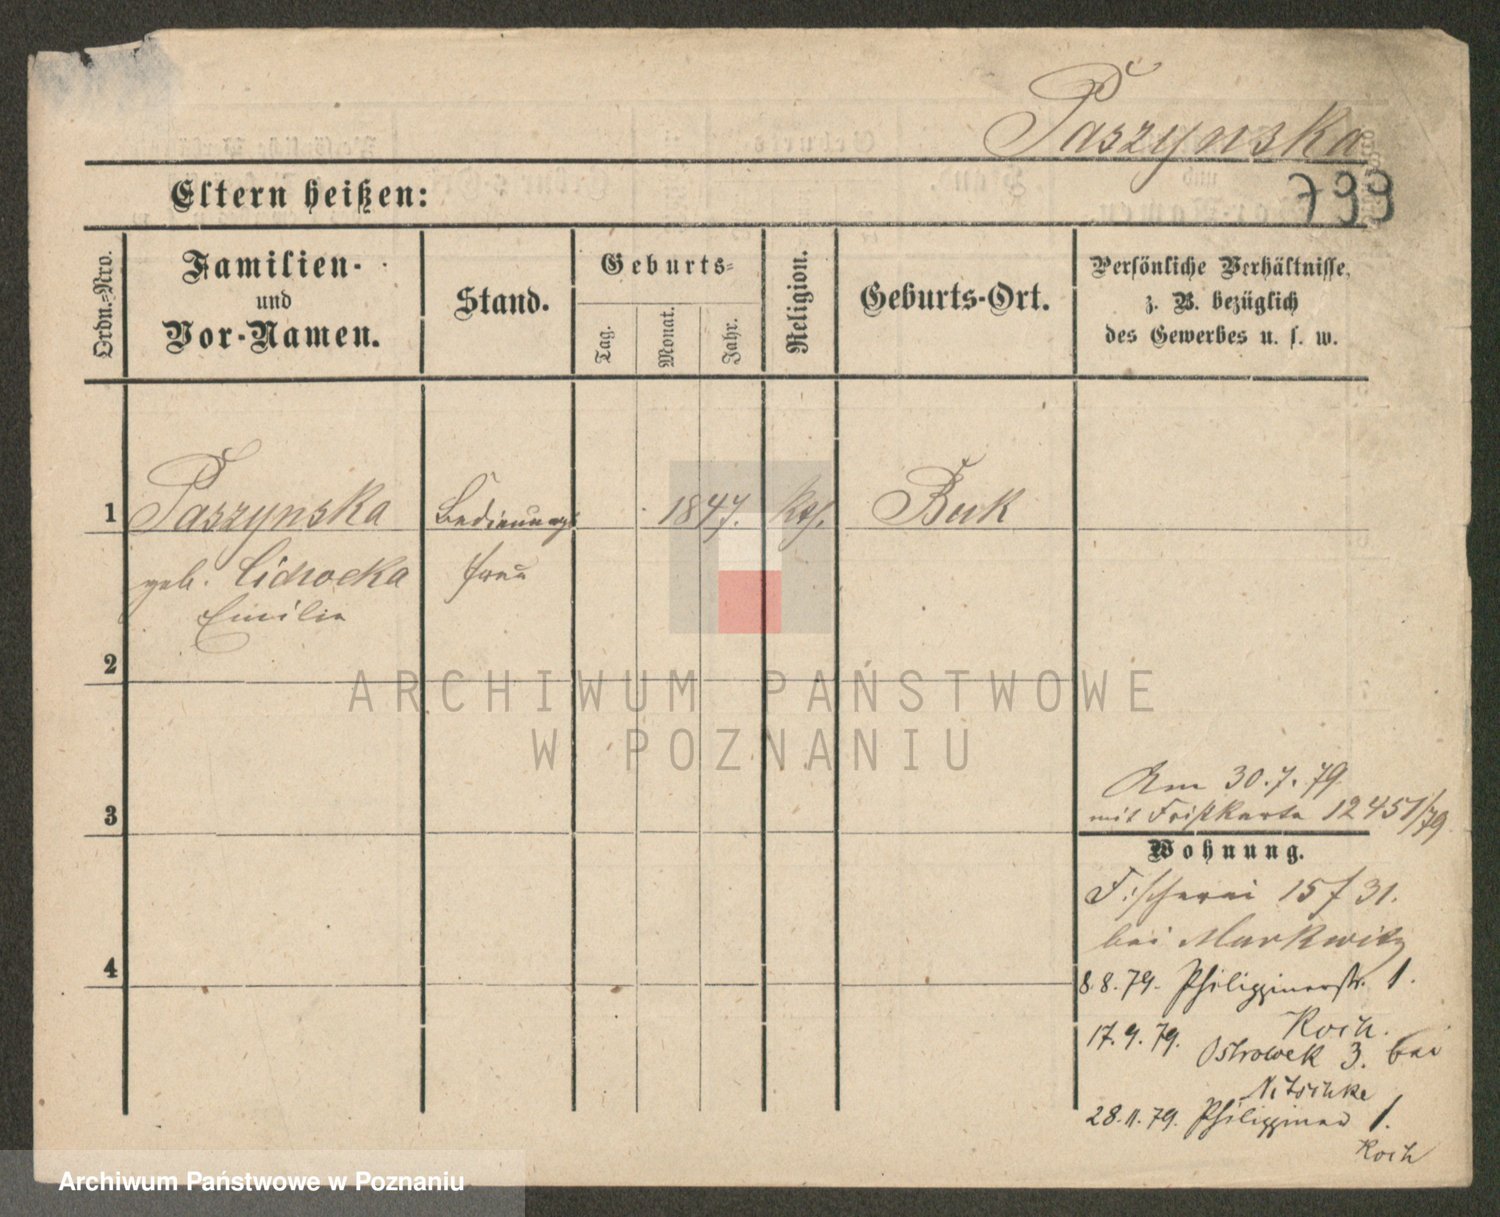 Paszynska
799
Eltern heißen:
Ordn.-Nro.
Familien-
und
Vor-Namen.
Stand.
Geburts-
Tag.
Monat.
Jahr.
Religion.
Geburts-Ort.
Persönliche Verhältnisse,
z. B. bezüglich
des Gewerbes u. s. w.
1 Paszynska Bedienungs 1847. kath. Buk
geb. Cichocka frau
Emilie
2
3
4
Am 30.7.79
mit Fristkarte 12451/79
Wohnung.
Fischerei 15/31.
bei Markwitz
8.8.79. Philippinerstr. 1.
Koch.
17.9.79. Ostrowek 3. bei
Nitschke
28.11.79. Philippiner 1.
Koch
ARCHIWUM PAŃSTWOWE
W POZNANIU
Archiwum Państwowe w Poznaniu